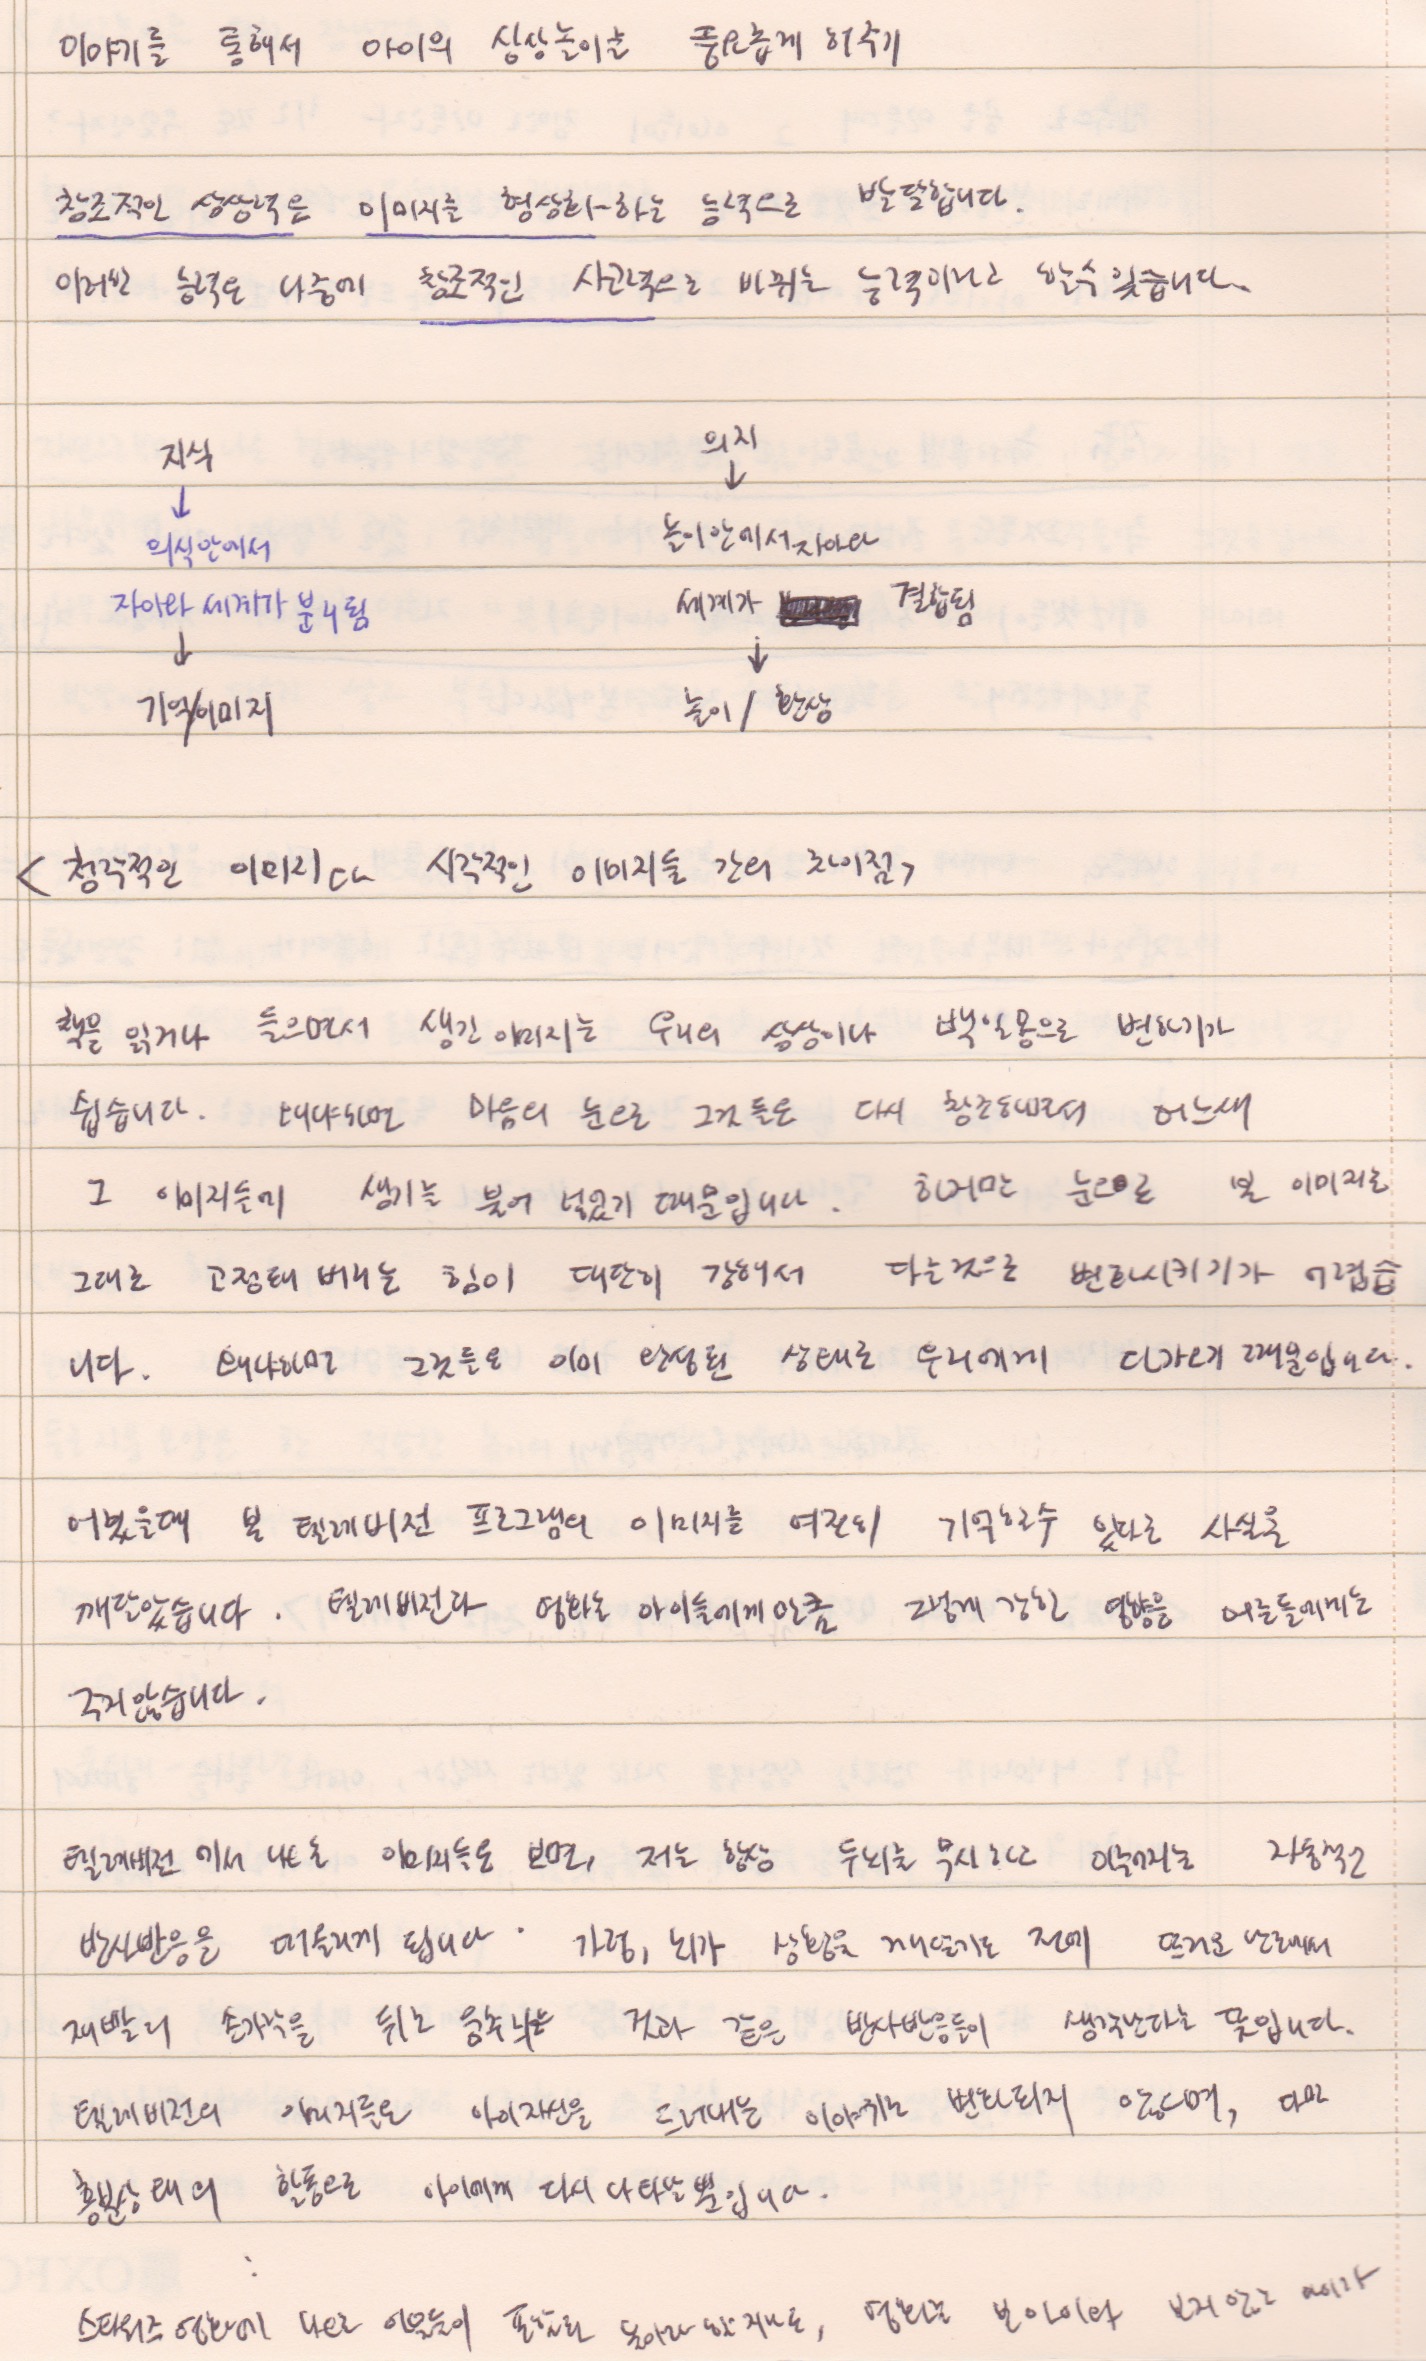 이야기를 통해서 아이의 상상놀이를 풍요롭게 해주기
창조적인 상상력은 이미지를 형상화하는 능력으로 발달합니다.
이러한 능력은 나중에 창조적인 사고력으로 바뀌는 능력이라고 할수 있습니다.
지식 의지
↓ ↓
의식안에서 놀이안에서 자아와
자아와 세계가 분리됨 세계가 결합됨
↓ ↓
기억/이미지 놀이/환상
<청각적인 이미지와 시각적인 이미지들 간의 차이점>
책을 읽거나 들으면서 생긴 이미지는 우리의 상상이나 백일몽으로 변하기가
쉽습니다. 왜냐하면 마음의 눈으로 그것들을 다시 창조하면서 어느새
그 이미지들에 생기를 불어 넣었기 때문입니다. 하지만 눈으로 본 이미지는
그대로 고정해 버리는 힘이 대단히 강해서 다른것으로 변화시키기가 어렵습
니다. 왜냐하면 그것들은 이미 완성된 상태로 우리에게 다가오기 때문입니다.
어렸을때 본 텔레비전 프로그램의 이미지를 여전히 기억할수 있다는 사실을
깨달았습니다. 텔레비전과 영화는 아이들에게만큼 그렇게 강한 영향을 어른들에게는
주지않습니다.
텔레비전에서 나오는 이미지들을 보면, 저는 항상 두뇌를 무시하고 이루어지는 자동적인
반사반응을 떠올리게 됩니다. 가령, 뇌가 상황을 깨닫기도 전에 뜨거운 난로에서
재빨리 손가락을 뒤로 움츠리는 것과 같은 반사반응들이 생각난다는 뜻입니다.
텔레비전의 이미지들은 아이자신을 드러내는 이야기로 변화되지 않으며, 다만
흥분상태의 활동으로 아이에게 다시 나타날 뿐입니다.
:
스타워즈 영화에 나오는 인물들이 놀이라 할지라도, 영화를 본 아이와 보지 않은 아이가